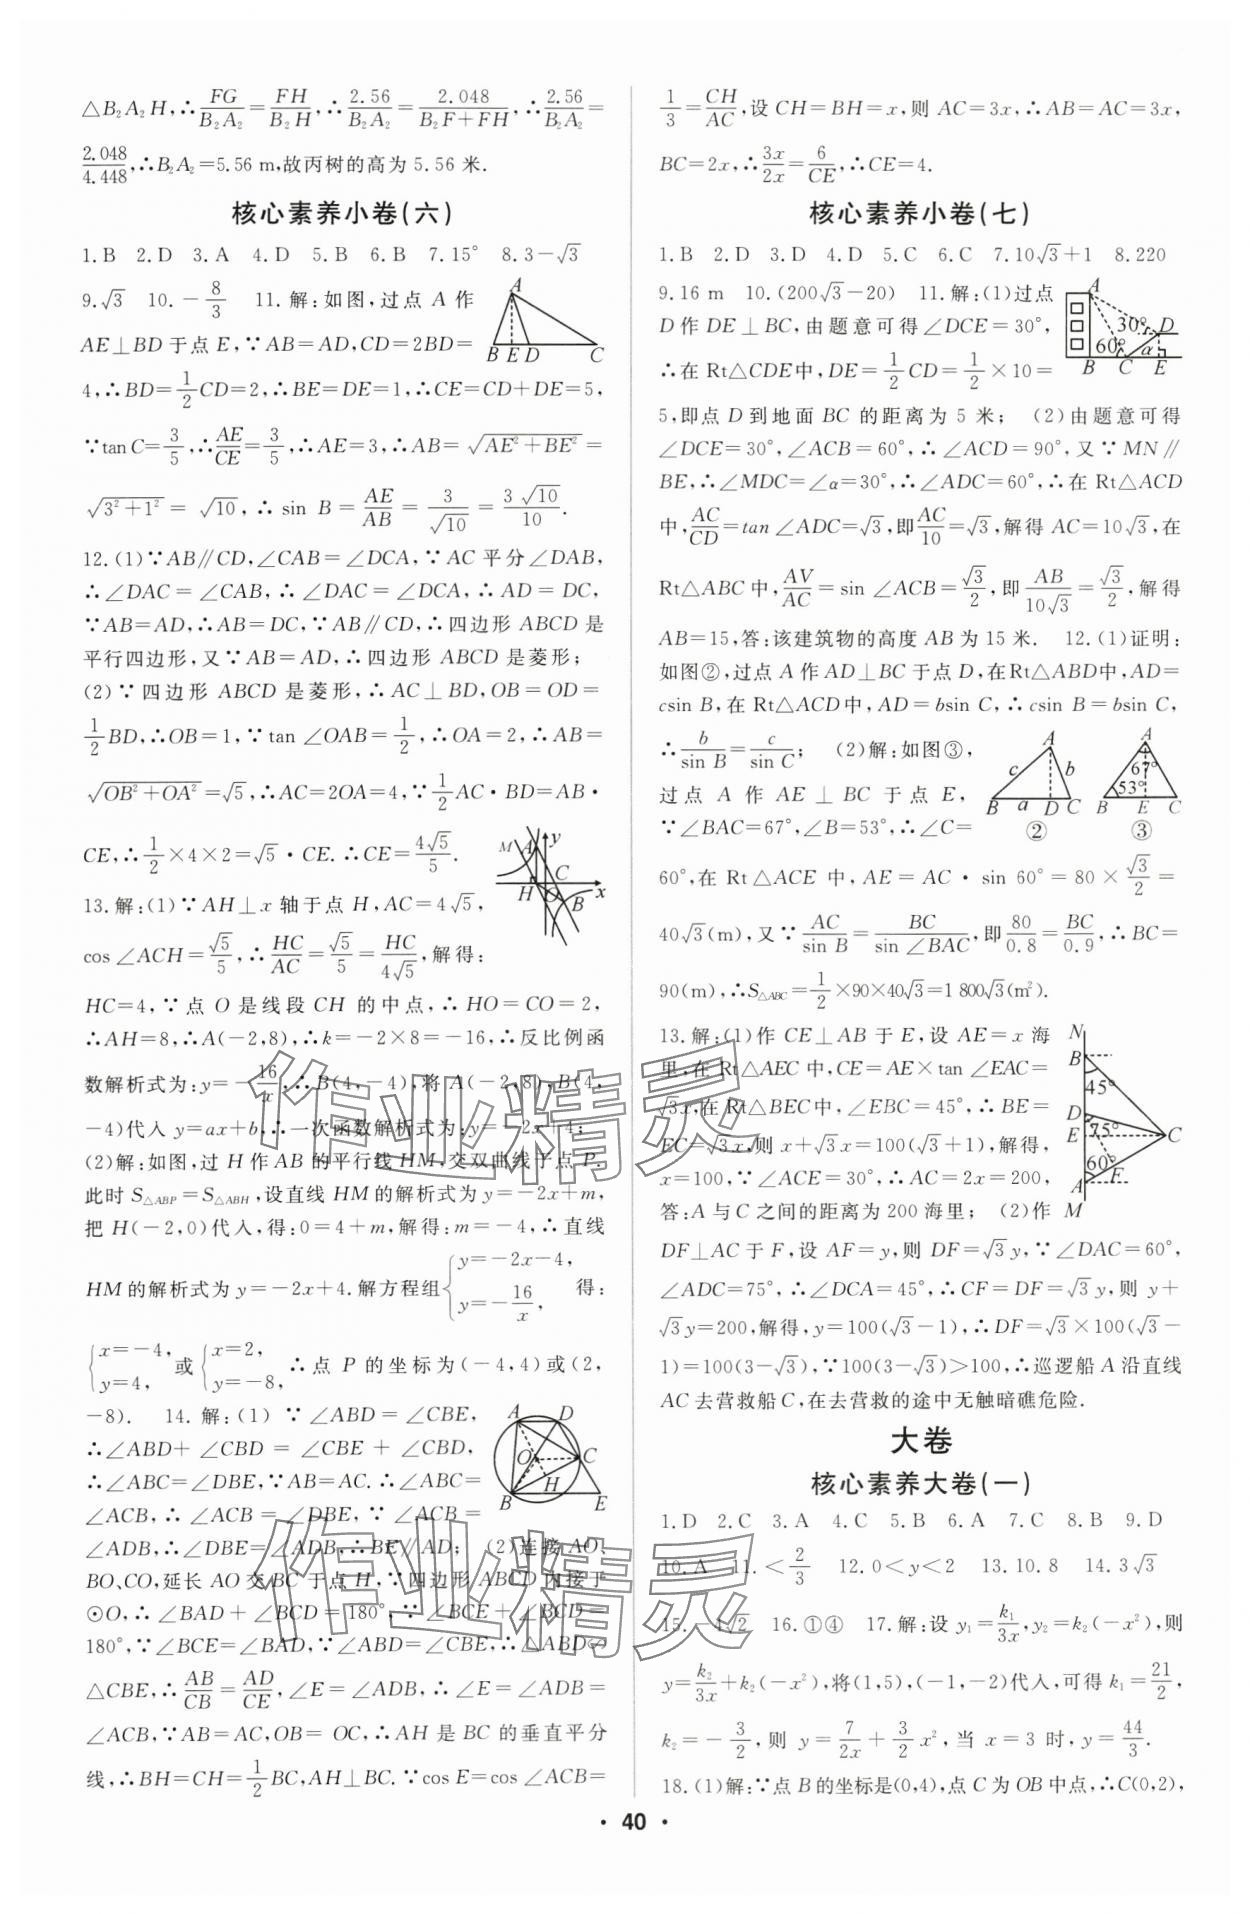 △B₂A₂H,∴FG/B₂A₂=FH/B₂H,∴2.56/B₂A₂=2.048/(B₂F+FH),∴2.56/B₂A₂=
2.048/4.448,∴B₂A₂=5.56 m,故丙树的高为 5.56 米.
核心素养小卷(六)
1.B 2.D 3.A 4.D 5.B 6.B 7.15° 8.3-√3
9.√3 10.-8/3 11.解:如图,过点 A 作
AE⊥BD 于点 E,∵AB=AD,CD=2BD=
4,∴BD=1/2CD=2,∴BE=DE=1,∴CE=CD+DE=5,
∵tan C=3/5,∴AE/CE=3/5,∴AE=3,∴AB=√(AE²+BE²)=
√(3²+1²)=√10,∴sin B=AE/AB=3/√10=3√10/10.
12.(1)∵AB∥CD,∠CAB=∠DCA,∵AC 平分∠DAB,
∴∠DAC=∠CAB,∴∠DAC=∠DCA,∴AD=DC,
∵AB=AD,∴AB=DC,∵AB∥CD,∴四边形 ABCD 是
平行四边形,又∵AB=AD,∴四边形 ABCD 是菱形;
(2)∵四边形 ABCD 是菱形,∴AC⊥BD,OB=OD=
1/2BD,∴OB=1,∵tan∠OAB=1/2,∴OA=2,∴AB=
√(OB²+OA²)=√5,∴AC=2OA=4,∵1/2AC·BD=AB·
CE,∴1/2×4×2=√5·CE.∴CE=4√5/5.
13.解:(1)∵AH⊥x 轴于点 H,AC=4√5,
cos∠ACH=√5/5,∴HC/AC=√5/5=HC/4√5,解得:
HC=4,∵点 O 是线段 CH 的中点,∴HO=CO=2,
∴AH=8,∴A(-2,8),∴k=-2×8=-16,∴反比例函
数解析式为:y=-16/x,∴B(4,-4),将 A(-2,8),B(4,
-4)代入 y=ax+b,∴一次函数解析式为:y=-2x+4;
(2)解:如图,过 H 作 AB 的平行线 HM,交双曲线于点 P.
此时 S△ABP=S△ABH,设直线 HM 的解析式为 y=-2x+m,
把 H(-2,0)代入,得:0=4+m,解得:m=-4,∴直线
HM 的解析式为 y=-2x+4.解方程组{y=-2x-4, y=-16/x, 得:
{x=-4, y=4, 或{x=2, y=-8, ∴点 P 的坐标为(-4,4)或(2,
-8). 14.解:(1)∵∠ABD=∠CBE,
∴∠ABD+∠CBD=∠CBE+∠CBD,
∴∠ABC=∠DBE,∵AB=AC.∴∠ABC=
∠ACB,∴∠ACB=∠DBE,∵∠ACB=
∠ADB,∴∠DBE=∠ADB,∴BE∥AD; (2)连接 AO、
BO、CO,延长 AO 交 BC 于点 H,∵四边形 ABCD 内接于
⊙O,∴∠BAD+∠BCD=180°,∵∠BCE+∠BCD=
180°,∵∠BCE=∠BAD,∵∠ABD=∠CBE,∴△ABD∽
△CBE,∴AB/CB=AD/CE,∴∠E=∠ADB,∴∠E=∠ADB=
∠ACB,∵AB=AC,OB=OC,∴AH 是 BC 的垂直平分
线,∴BH=CH=1/2BC,AH⊥BC.∵cos E=cos∠ACB=
1/3=CH/AC,设 CH=BH=x,则 AC=3x,∴AB=AC=3x,
BC=2x,∴3x/2x=6/CE,∴CE=4.
核心素养小卷(七)
1.B 2.D 3.D 4.D 5.C 6.C 7.10√3+1 8.220
9.16 m 10.(200√3-20) 11.解:(1)过点
D 作 DE⊥BC,由题意可得∠DCE=30°,
∴在 Rt△CDE中,DE=1/2CD=1/2×10=
5,即点 D 到地面 BC 的距离为 5 米; (2)由题意可得
∠DCE=30°,∠ACB=60°,∴∠ACD=90°,又∵MN∥
BE,∴∠MDC=∠α=30°,∴∠ADC=60°,∴在 Rt△ACD
中,AC/CD=tan∠ADC=√3,即AC/10=√3,解得 AC=10√3,在
Rt△ABC中,AV/AC=sin∠ACB=√3/2,即AB/10√3=√3/2,解得
AB=15,答:该建筑物的高度 AB 为 15 米. 12.(1)证明:
如图②,过点 A 作 AD⊥BC 于点 D,在Rt△ABD中,AD=
csin B,在 Rt△ACD中,AD=bsin C,∴csin B=bsin C,
∴b/sin B=c/sin C; (2)解:如图③,
过点 A 作 AE⊥BC 于点 E,
∵∠BAC=67°,∠B=53°,∴∠C=
60°,在 Rt△ACE 中,AE=AC·sin 60°=80×√3/2=
40√3(m),又∵AC/sin B=BC/sin∠BAC,即80/0.8=BC/0.9,∴BC=
90(m),∴S△ABC=1/2×90×40√3=1 800√3(m²).
13.解:(1)作 CE⊥AB 于 E,设 AE=x 海
里,在 Rt△AEC 中,CE=AE×tan∠EAC=
√3x,在Rt△BEC中,∠EBC=45°,∴BE=
EC=√3x,则 x+√3x=100(√3+1),解得,
x=100,∵∠ACE=30°,∴AC=2x=200,
答:A 与 C 之间的距离为 200 海里; (2)作
DF⊥AC 于 F,设 AF=y,则 DF=√3y,∵∠DAC=60°,
∠ADC=75°,∴∠DCA=45°,∴CF=DF=√3y,则 y+
√3y=200,解得,y=100(√3-1),∴DF=√3×100(√3-
1)=100(3-√3),∵100(3-√3)>100,∴巡逻船 A 沿直线
AC 去营救船 C,在去营救的途中无触暗礁危险.
大卷
核心素养大卷(一)
1.D 2.C 3.A 4.C 5.B 6.A 7.C 8.B 9.D
10.A 11.<2/3 12.0<y<2 13.10.8 14.3√3
15.-1√2 16.①④ 17.解:设 y₁=k₁/3x,y₂=k₂(-x²),则
y=k₂/3x+k₂(-x²),将(1,5),(-1,-2)代入,可得 k₁=21/2,
k₂=-3/2,则 y=7/2x+3/2x²,当 x=3 时,y=44/3.
18.(1)解:∵点 B 的坐标是(0,4),点 C 为 OB 中点,∴C(0,2),
· 40 ·
作业精灵
作业精灵